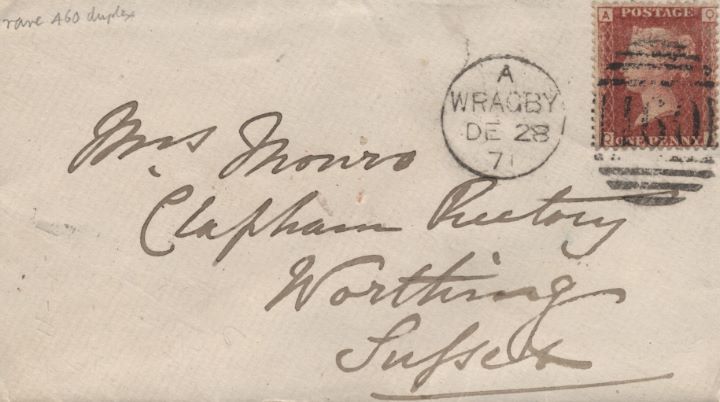 rare A60 duplex
A POSTAGE Q
ONE PENNY
A
WRAGBY
DE 28
71
Mrs Monro
Clapham Rectory
Worthing
Sussex